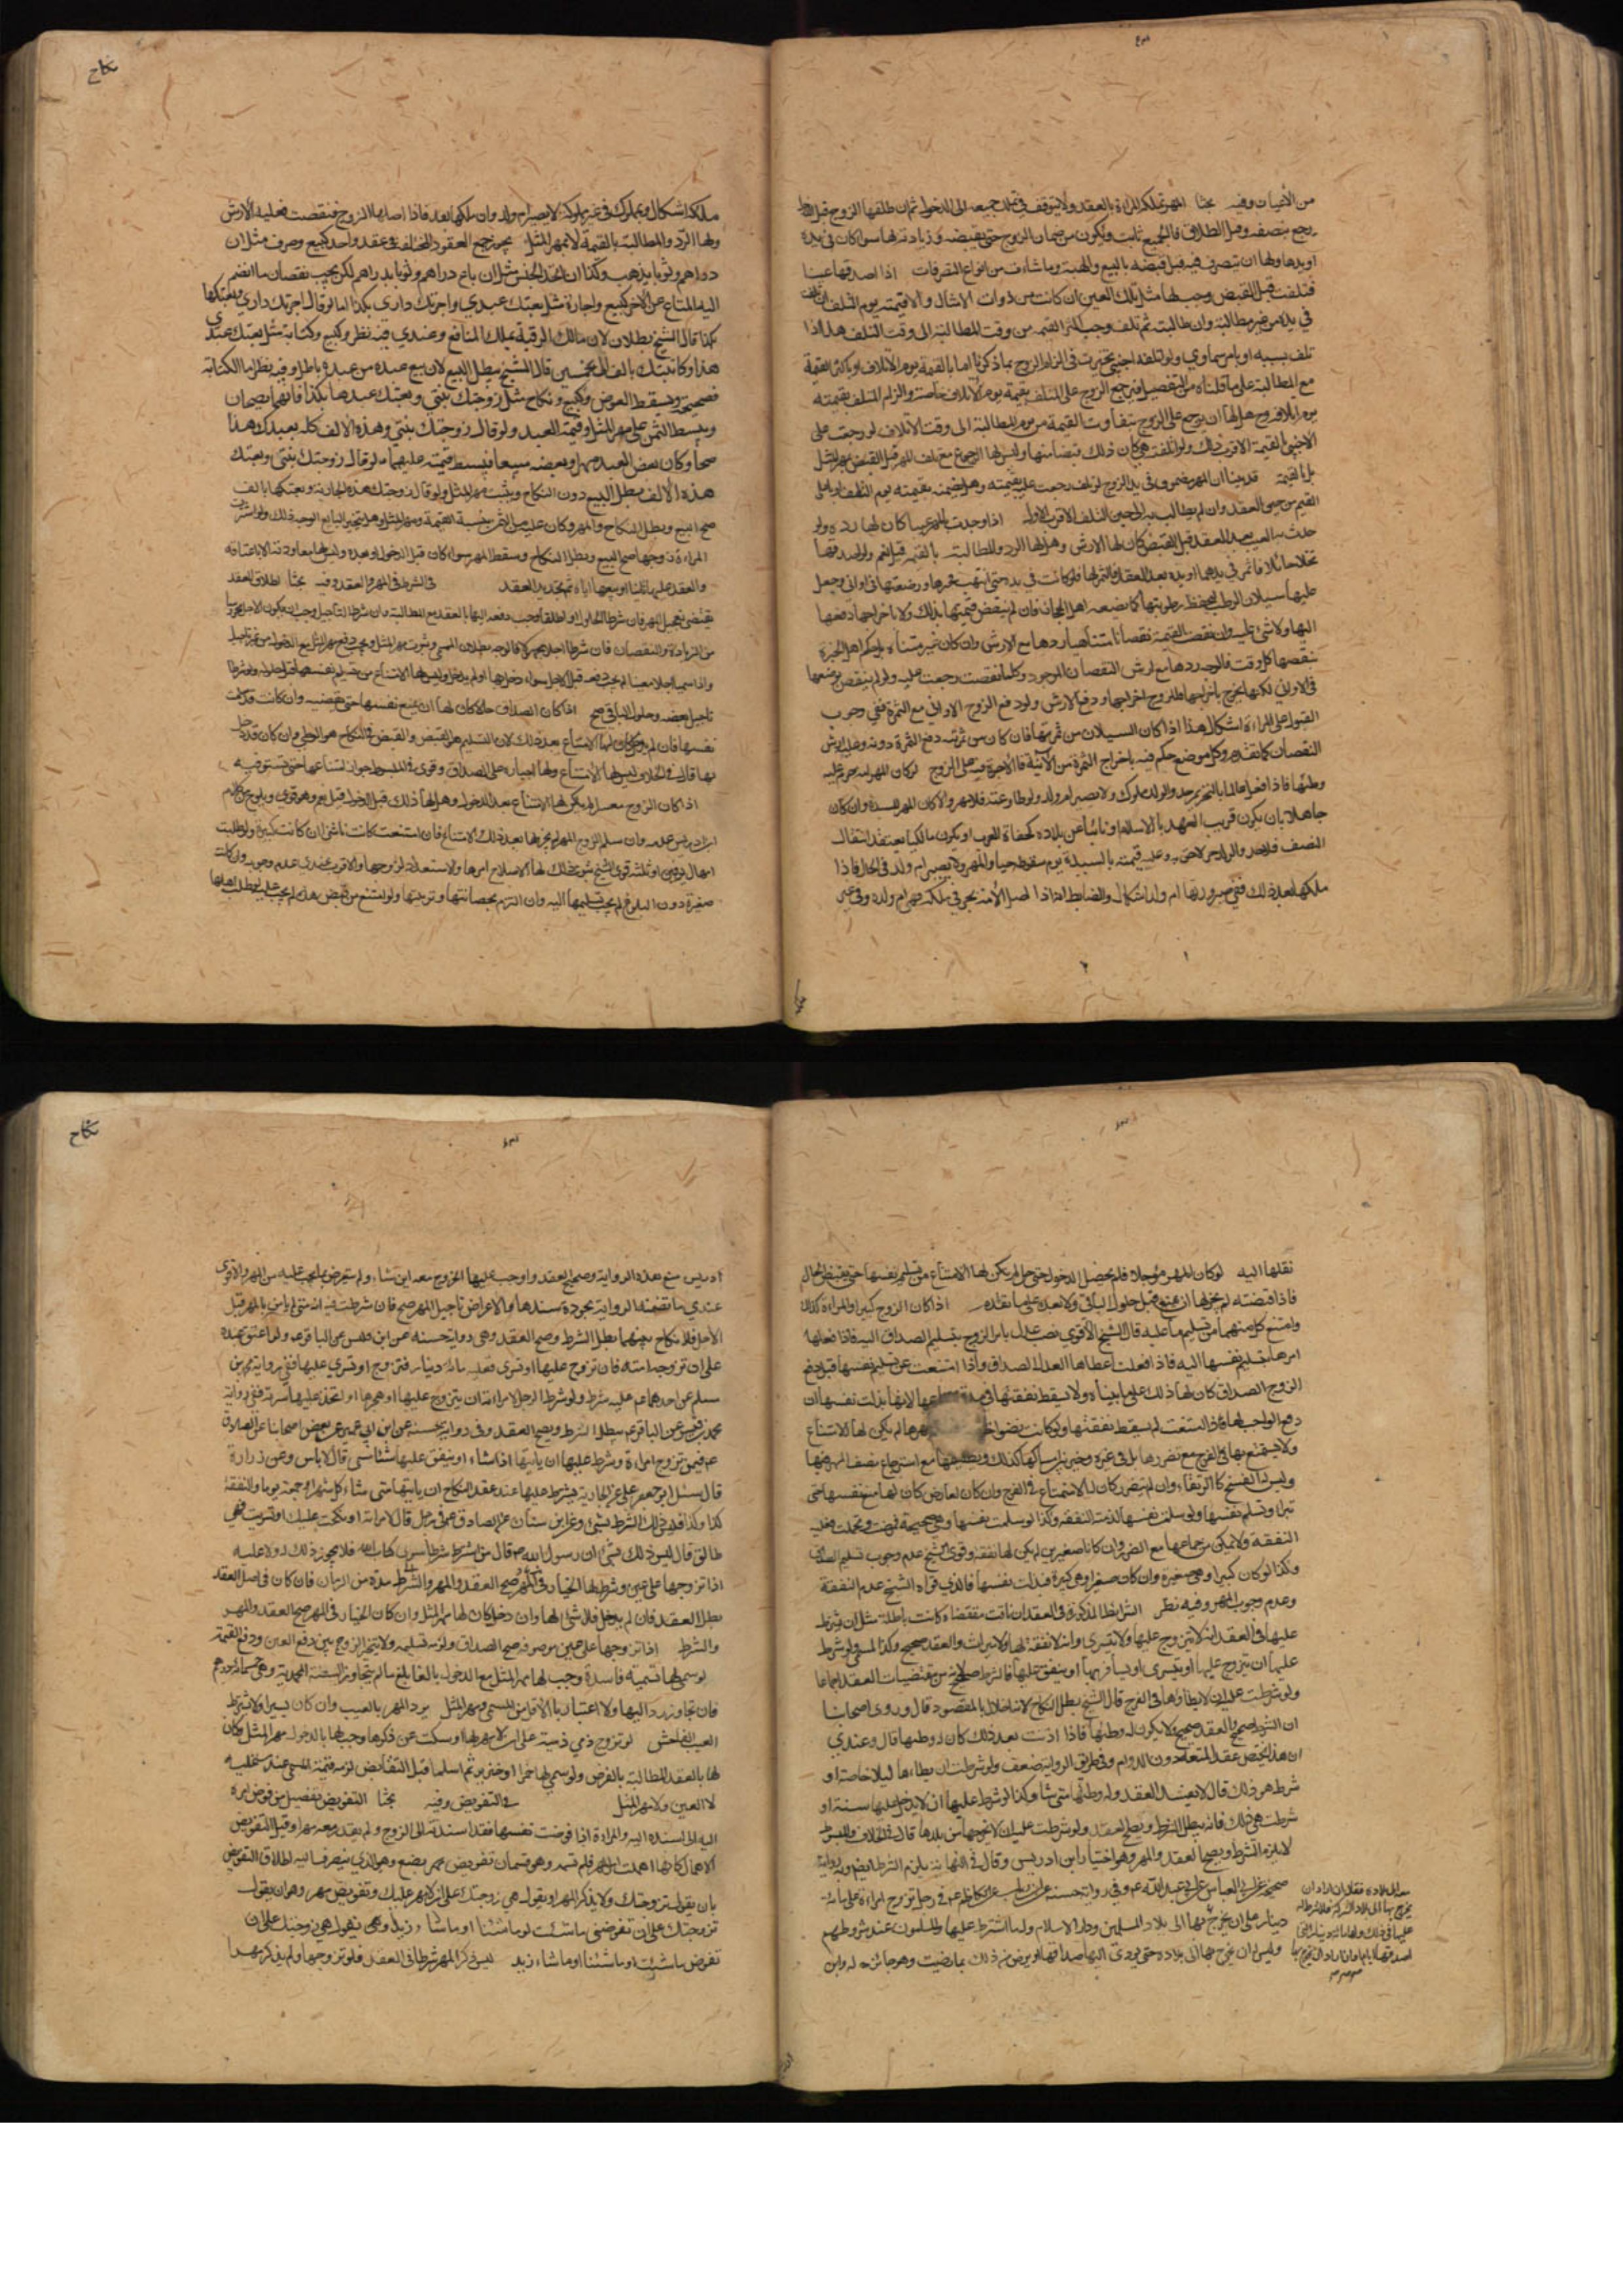 نكاح
من الأثمان وفيه بحثا المهر تملكه المراة بالعقد ولا يتوقف في تملك جميعه الى الدخول ثم ان طلقها الزوج قبل
رجع بنصفه وقبل الطلاق فالجميع ثابت ويكون من ضمان الزوج حتى يقبضه وزيادته لها سوا كان في يده
او يدها ولها ان تتصرف فيه قبل قبضه بالبيع والهبة وما شاءت من انواع التصرفات اذا اصدقها عينا
فتلفت قبل القبض وجب لها مثل تلك العين ان كانت من ذوات الامثال والا قيمته يوم التلف
في يده من غير مطالبة وان طالبته ثم تلف وجب اكثر القيمه من وقت المطالبة الى وقت التلف هذا اذا
تلف بسببه او بامر سماوي ولو اتلفه اجنبي تخيرت في الزام الزوج بما ذكرنا اما بالقيمة يوم الاتلاف او باكثر القيمة
مع المطالبة على ما قلناه من التفصيل فيرجع الزوج على المتلف بقيمة يوم الاتلاف خاصة والزام المتلف بقيمته
يوم اتلافه وهل لها ان ترجع على الزوج بتفاوت القيمة من يوم المطالبة الى وقت الاتلاف لو رجعت على
الاجنبي بالقيمة الاقرب ذلك ولو اتلفته هي كان ذلك قبضا منها وليس لها الرجوع مع تلف المهر قبل القبض بمهر المثل
بل بالقيمة قد بينا ان المهر مضمون في يد الزوج لو تلف رجعت عليه بقيمته وهل يضمنه بقيمته يوم التلف او باعلى
القيم من حين العقد وان لم يطالب به الى حين التلف الاقرب الاول اذا وجدت بالمهر عيبا كان لها رده ولو
حدث به العيب بعد العقد قبل القبض كان لها الارش وهل لها الرد والمطالبة بالقيمة قيل نعم ولو اصدقها
نخلا حائلا فاثمر في يدهما او يده بعد العقد فالثمر لها فلو كانت في يده حتى انتهت ثمرها ورضعتها في اواني وجعل
عليها سيلان الرطب ليحفظ رطوبتها كما يصنعه اهل الحجاز فان لم ينقص قيمتها بذلك ولا باخراجها دفعها
اليها ولا شئ عليه وان نقصت القيمة نقصانا متناهيا ردها مع الارش وان كان غير متناه بل يحكم اهل الخبرة
بنقصها كل وقت فالوجه ردها مع ارش النقصان الموجود وكلما نقصت رجعت عليه ولو لم ينقص بوضعها
في الاواني لكنها تخرج باخراجها فللزوج اخراجها ودفع الارش ولو دفع الزوج الاواني مع الثمرة ففي وجوب
القبول على المراة اشكال هذا اذا كان السيلان من ثمرتها فان كان من ثمرته دفع الثمرة دونه وعليه ارش
النقصان كما تقدم وكل موضع حكم فيه باخراج الثمرة من الانية فالاجرة فيه على الزوج لو كان المهر امة حرم عليه
وطئها فاذا فعل عالما بالتحريم حد والولد مملوك ولا تصير ام ولد ولو طاوعته فلا مهر والا كان المهر للسيدة وان كان
جاهلا بان يكون قريب العهد بالاسلام او نائيا عن بلاده كجفاة العرب او يكون مالكيا يعتقد انتقال
النصف فلا حد والولد حر لاحق به وعليه قيمته بالسيدة يوم سقوطه حيا والمهر ولا تصير ام ولد في الحال فاذا
ملكها بعد ذلك ففي صيرورتها ام ولد اشكال والضابط انه اذا احبل الامة بحر في ملكه فهي ام ولده وفي غير
ملكه اشكال وبمملوك في غير ملوكه لا تصير ام ولد وان ملكها بعد فاذا اصابها الزوج فنقصت فعليه الارش
ولها الرد والمطالبة بالقيمة لا بمهر المثل يجوز جمع العقود المختلفة في عقد واحد كبيع وصرف مثل ان
دراهم وثوبا بذهب وكذا ان اتحد الجنس مثل ان باع دراهم وثوبا بدراهم لكن يجب نقصان ما انضم
اليه المتاع عن الاخر كبيع واجارة مثل بعتك عبدي واجرتك داري بكذا اما لو قال اجرتك داري وبعتكها
بكذا قال الشيخ بطلان لان مالك الرقبة يملك المنافع وعندي فيه نظر وكبيع وكتابة مثل بعتك عبدي
هذا وكاتبتك بالف الى نجمين قال الشيخ يبطل البيع لان بيع عبده من عبده باطل وفيه نظر اما الكتابة
فصحيحة ويسقط العوض وكبيع ونكاح مثل زوجتك بنتي وبعتك عبدها بكذا فانهما يصحان
ويبسط الثمن على مهر المثل وقيمة العبد ولو قال زوجتك بنتي وهذه الالف كله بعبدك هذا
صحا وكان بعض العبد مهرا وبعضه مبيعا فيبسط قيمته عليهما ولو قال زوجتك بنتي وبعتك
هذه الالف بطل البيع دون النكاح ويثبت مهر المثل ولو قال زوجتك هذه الجارية وبعتكها بالف
صح البيع وبطل النكاح والمهر وكان عليه من الثمن بنسبة القيمة ومهر المثل وهل يتخير البايع الوجه ذلك ولو اشترت
المراة زوجها صح البيع وبطل النكاح وسقط المهر سواء كان قبل الدخول او بعده وليس لها معاودته الا باعتاقه
والعقد عليهما ثانيا او ببيعها اياه ثم تجديد العقد في الشرط في المهر والعقد وفيه بحثا اطلاق العقد
يقتضي تعجيل المهر فان شرط الحلول او اطلقا وجب دفعه اليها بالعقد مع المطالبة وان شرطا التاجيل وجب ان يكون الاجل
من الزيادة والنقصان
واذا سميا اجلا معينا لم يجب دفعه قبل الاجل سواء دخل بها او لم يدخل وليس لها الامتناع من تسليم نفسها
تاجيل بعضه وحلول الباقي صح اذا كان الصداق حالا كان لها ان تمنع نفسها حتى تقبضه وان كانت قد سلمت
نفسها فان لم يدخل كان لها الامتناع بعد ذلك لان التسليم هو القبض والقبض في النكاح هو الوطي وان كان قد دخل
بها قال في الخلاف ليس لها الامتناع ولها اجباره على الصداق وقوى في المبسوط جواز امتناعها حتى تستوفيه
اذا كان الزوج معسرا لم يكن لها الامتناع بعد الدخول وهل لها ذلك قبل الدخول قيل نعم وهو قوي ويلوح من كلام
ابن ادريس عدمه وان سلم الزوج المهر لم يجز لها بعد ذلك الامتناع فان امتنعت كانت ناشزا ان كانت كبيرة ولو طلبت
امهال يومين او ثلثة قوى الشيخ ثبوت ذلك لها لاصلاح امرها والاستعداد لزوجها والاقرب عندي عدم وجوبه وان كانت
صغيرة دون البلوغ لم يجب تسليمها اليه وان التزم بحضانتها وتربيتها ولو امتنع من قبض هذه لم يجب عليه
نكاح
نقلها اليه لو كان المهر مؤجلا فلم يحصل الدخول حتى حل لم يكن لها الامتناع من تسليم نفسها حتى تقبض الحال
فاذا قبضته لم يجز لها ان تمنعه قبل حلول الباقي ولا بعده على ما تقدم اذا كان الزوج كبيرا والمراة كذلك
وامتنع كل منهما من تسليم ما عليه قال الشيخ الاقوى نصب عدل يامر الزوج بتسليم الصداق اليه فاذا فعل
امرها بتسليم نفسها اليه فاذا فعلت اعطاها العدل الصداق واذا امتنعت عن تسليم نفسها قبل دفع
الزوج الصداق كان لها ذلك على ما بيناه ولا يسقط نفقتها في مدة امتناعها لانها بذلت نفسها ان
دفع الواجب لها فاذا امتنعت لم يسقط نفقتها ولو كانت نضوا لم يكن لها الامتناع
ولا يستمتع بها في الفرج مع تضررها بل في غيره ويتخير بين امساكها كذلك وتطليقها مع استرجاع نصف المهر منها
وليس له الفسخ كالرتقاء وان لم يتضرر كان له الاستمتاع في الفرج وان كان لعارض كان لها منع نفسها حتى
تبرا وتسلم نفسها ولو سلمت نفسها لزمت النفقة وكذا لو سلمت نفسها وهي صحيحة فمرضت وتجب عليه
النفقة ولا يمكن من جماعها مع الضرر وان كانا صغيرين لم يكن لها نفقة وقوى الشيخ عدم وجوب تسليم الصداق
وكذا لو كان كبيرا وهي صغيرة وان كان صغيرا وهي كبيرة فبذلت نفسها فالذي قواه الشيخ عدم النفقة
وعدم وجوب المهر وفيه نظر الشرايط المذكورة في العقد ان نافت مقتضاه كانت باطلة مثل ان تشرط
عليها في العقد ان لا يتزوج عليها ولا يتسرى وان لا نفقة لها ولا ميراث والعقد صحيح وكذا المهر ولو شرط
عليها ان يتزوج عليها او يتسرى او يسافر بها او ينفق عليها فالشرط صحيح لانه من مقتضيات العقد اجماعا
ولو شرطت عليه ان لا يطاوها في الفرج قال الشيخ يبطل النكاح لانه اخلال بالمقصود قال وروى اصحابنا
ان الشرط صحيح والعقد صحيح ولا يكون له وطئها فاذا اذنت بعد ذلك كان له وطيها قال وعندي
ان هذا يختص عقد المتعة دون الدوام وفي طريق الرواية ضعف ولو شرطت ان يطاءها ليلا خاصة او
شرط هو ذلك قال لا يفسد العقد وله وطئها متى شا وكذا لو شرط عليها ان لا يدخل عليها سنة او
شرطت هي ذلك فانه يبطل الشرط ويصح العقد ولو شرطت عليه ان لا يخرجها من بلدها قال في الخلاف والمبسوط
لا يلزم الشرط ويصح العقد والمهر وهو اختيار ابن ادريس وقال في النهاية يلزم الشرط لانه يؤيده رواية
صحيحة عن ابي العباس عن ابي عبد الله ع وفي رواية حسنة عن ابن رئاب عن الكاظم ع في رجل تزوج امراة على مائة
دينار على ان تخرج معه الى بلاده
بها الى بلاد المسلمين ودار الاسلام وله ما اشترط عليها والمسلمون عند شروطهم
وليس له ان يخرج بها الى بلاده حتى يودي اليها صداقها او ترضى منه ذلك بما رضيت وهو جائز له وابن
معه الى بلاده فقال ان اراد ان
يخرج بها الى بلاد الشرك فلا شرط له
عليها في ذلك ولها مائة دينار التي
اصدقها اياها وان اراد ان يخرج بها
ادريس منع هذه الرواية وصحح العقد واوجب عليها الخروج معه اين شاء ولم يتعرض بما يجب عليه من المهر والاقوى
عندي ما تضمنته الرواية بجودة سندها ولا اعراض تاجيل المهر صح فان شرطت فيه انه متى لم ياتي بالمهر قبل
الاجل فلا نكاح بينهما بطل الشرط وصح العقد وهي رواية حسنة عن ابن قيس عن الباقر ع ولو اعتق عبده
على ان تزوجه امته فان تزوج عليها او تسرى فعليه مائة دينار فتزوج او تسرى عليها ففي رواية محمد بن
مسلم عن احدهما ع عليه شرطه ولو شرط الرجل لامراة ان يتزوج عليها او هجرها او اتخذ عليها سرية ففي رواية
محمد بن قيس عن الباقر ع يبطل الشرط ويصح العقد وفي رواية حسنة عن ابن ابي عمير عن بعض اصحابنا عن الصادق
ع فيمن تزوج امراة وشرط عليها ان ياتيها اذا شاء او ينفق عليها شئا شئى قال لا باس وعن زرارة
قال سئل ابو جعفر ع عن الجارية يشترط عليها عند عقد النكاح ان ياتيها متى شاء كل شهر او جمعة يوما والنفقة
كذا وكذا قال ليس ذلك الشرط بشئ وعن ابن سنان عن الصادق ع في رجل قال لامراته او نكحت عليك او تسريت فهي
طالق قال ليس ذلك بشئ ان رسول الله ص قال من اشترط شرطا سوى كتاب الله فلا يجوز ذلك له ولا عليه
اذا تزوجها على عين وشرط لها الخيار في المهر صح العقد والمهر والشرط مدة من الزمان فان كان في اصل العقد
بطل العقد فان لم يدخل فلا شئ لها وان دخل كان لها مهر المثل وان كان الخيار في المهر صح العقد والمهر
والشرط اذا تزوجها على عين موصوفة صح الصداق ولزمه تسليمه ولا يتخير الزوج بين دفع العين ودفع القيمة
لو سمى لها تسمية فاسدة وجب لها مهر المثل مع الدخول بالغا ما بلغ ما لم يتجاوز السنة المحمدية وهي خمسمائة درهم
فان تجاوز رد اليها ولا اعتبار بالاقل من المسمى ومهر المثل يرد المهر بالعيب وان كان يسيرا ولا يشترط
العيب الفاحش لو تزوج ذمي ذمية على ان لا مهر لها او سكت عن ذكرها وجب لها بالدخول مهر المثل وكان
لها بالعقد المطالبة بالفرض ولو سمى لها خمرا او خنزيرا ثم اسلما قبل التقابض لزمه قيمة المسمى عند مستحليه
لا العين ولا مهر المثل في التفويض وفيه بحثا التفويض تفعيل من فوض امره
اليه الى اسنده اليه والمراة اذا فوضت نفسها فقد اسندته الى الزوج ولم يقدر معه مهرا وقيل التفويض
الاهمال كانها اهملت امر المهر فلم تسمه وهو قسمان تفويض مهر وبضع وهو الذي ينصرف اليه اطلاق التفويض
بان يقول تزوجتك ولا يذكر المهر او يقول هي زوجتك على ان لا مهر عليك وتفويض مهر وهو ان يقول
تزوجتك على ان تفرضي ما شئت او ما شئنا او ما شاء زيد او هي تقول هي زوجتك على ان
تفرض ما شئت او ما شئنا او ما شاء زيد ليس ذكر المهر شرطا في العقد فلو تزوجها ولم يذكر مهرا